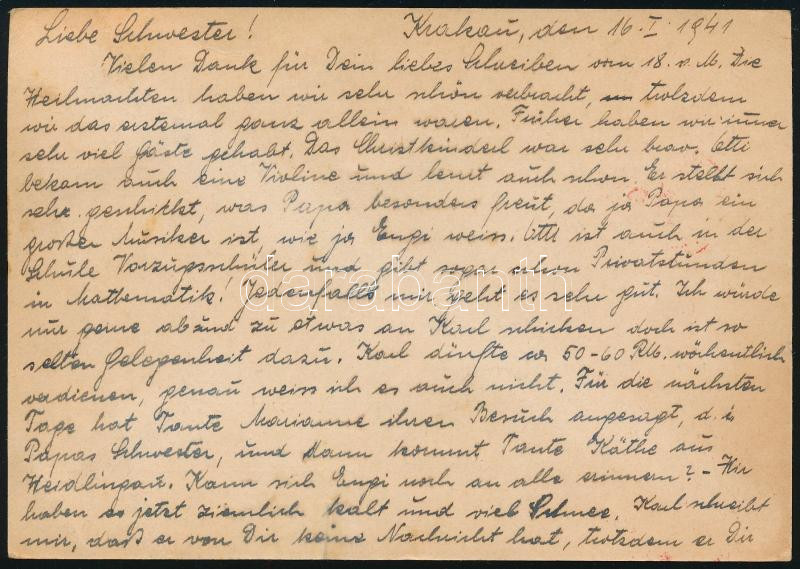 Liebe Schwester! Krakau, den 16. I. 1941
Vielen Dank für Dein liebes Schreiben vom 18. v. M. Die
Weihnachten haben wir sehr schön verbracht, trotzdem
wir das erstemal ganz allein waren. Früher haben wir immer
sehr viel Gäste gehabt. Das Christkinderl war sehr brav. Otti
bekam auch eine Violine und lernt auch schon. Er stellt sich
sehr geschickt, was Papa besonders freut, da ja Papa ein
großer Musiker ist, wie ja Engi weiss. Otti ist auch in der
Schule Vorzugsschüler und gibt sogar schon Privatstunden
in Mathematik! Jedenfalls mir geht es sehr gut. Ich würde
nur gerne ab und zu etwas an Karl schicken doch ist so
selten Gelegenheit dazu. Karl dürfte ca 50-60 RM. wöchentlich
verdienen, genau weiss ich es auch nicht. Für die nächsten
Tage hat Tante Marianne ihren Besuch angesagt, d. i.
Papas Schwester, und dann kommt Tante Käthe aus
Weidlingau. Kann sich Engi noch an alle erinnern? - Wir
haben es jetzt ziemlich kalt und viel Schnee. Karl schreibt
mir, daß er von Dir keine Nachricht hat, trotzdem er Dir
darabanth